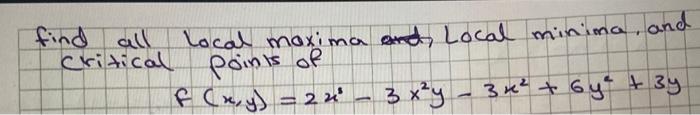 find all local maxima and, Local minima, and
critical points of
f(x,y) = 2x³ - 3x²y - 3x² + 6y² + 3y